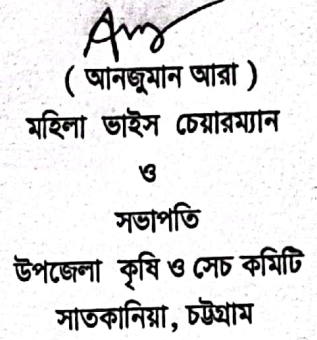 ( আনজুমান আরা )
মহিলা ভাইস চেয়ারম্যান
ও
সভাপতি
উপজেলা কৃষি ও সেচ কমিটি
সাতকানিয়া, চট্টগ্রাম